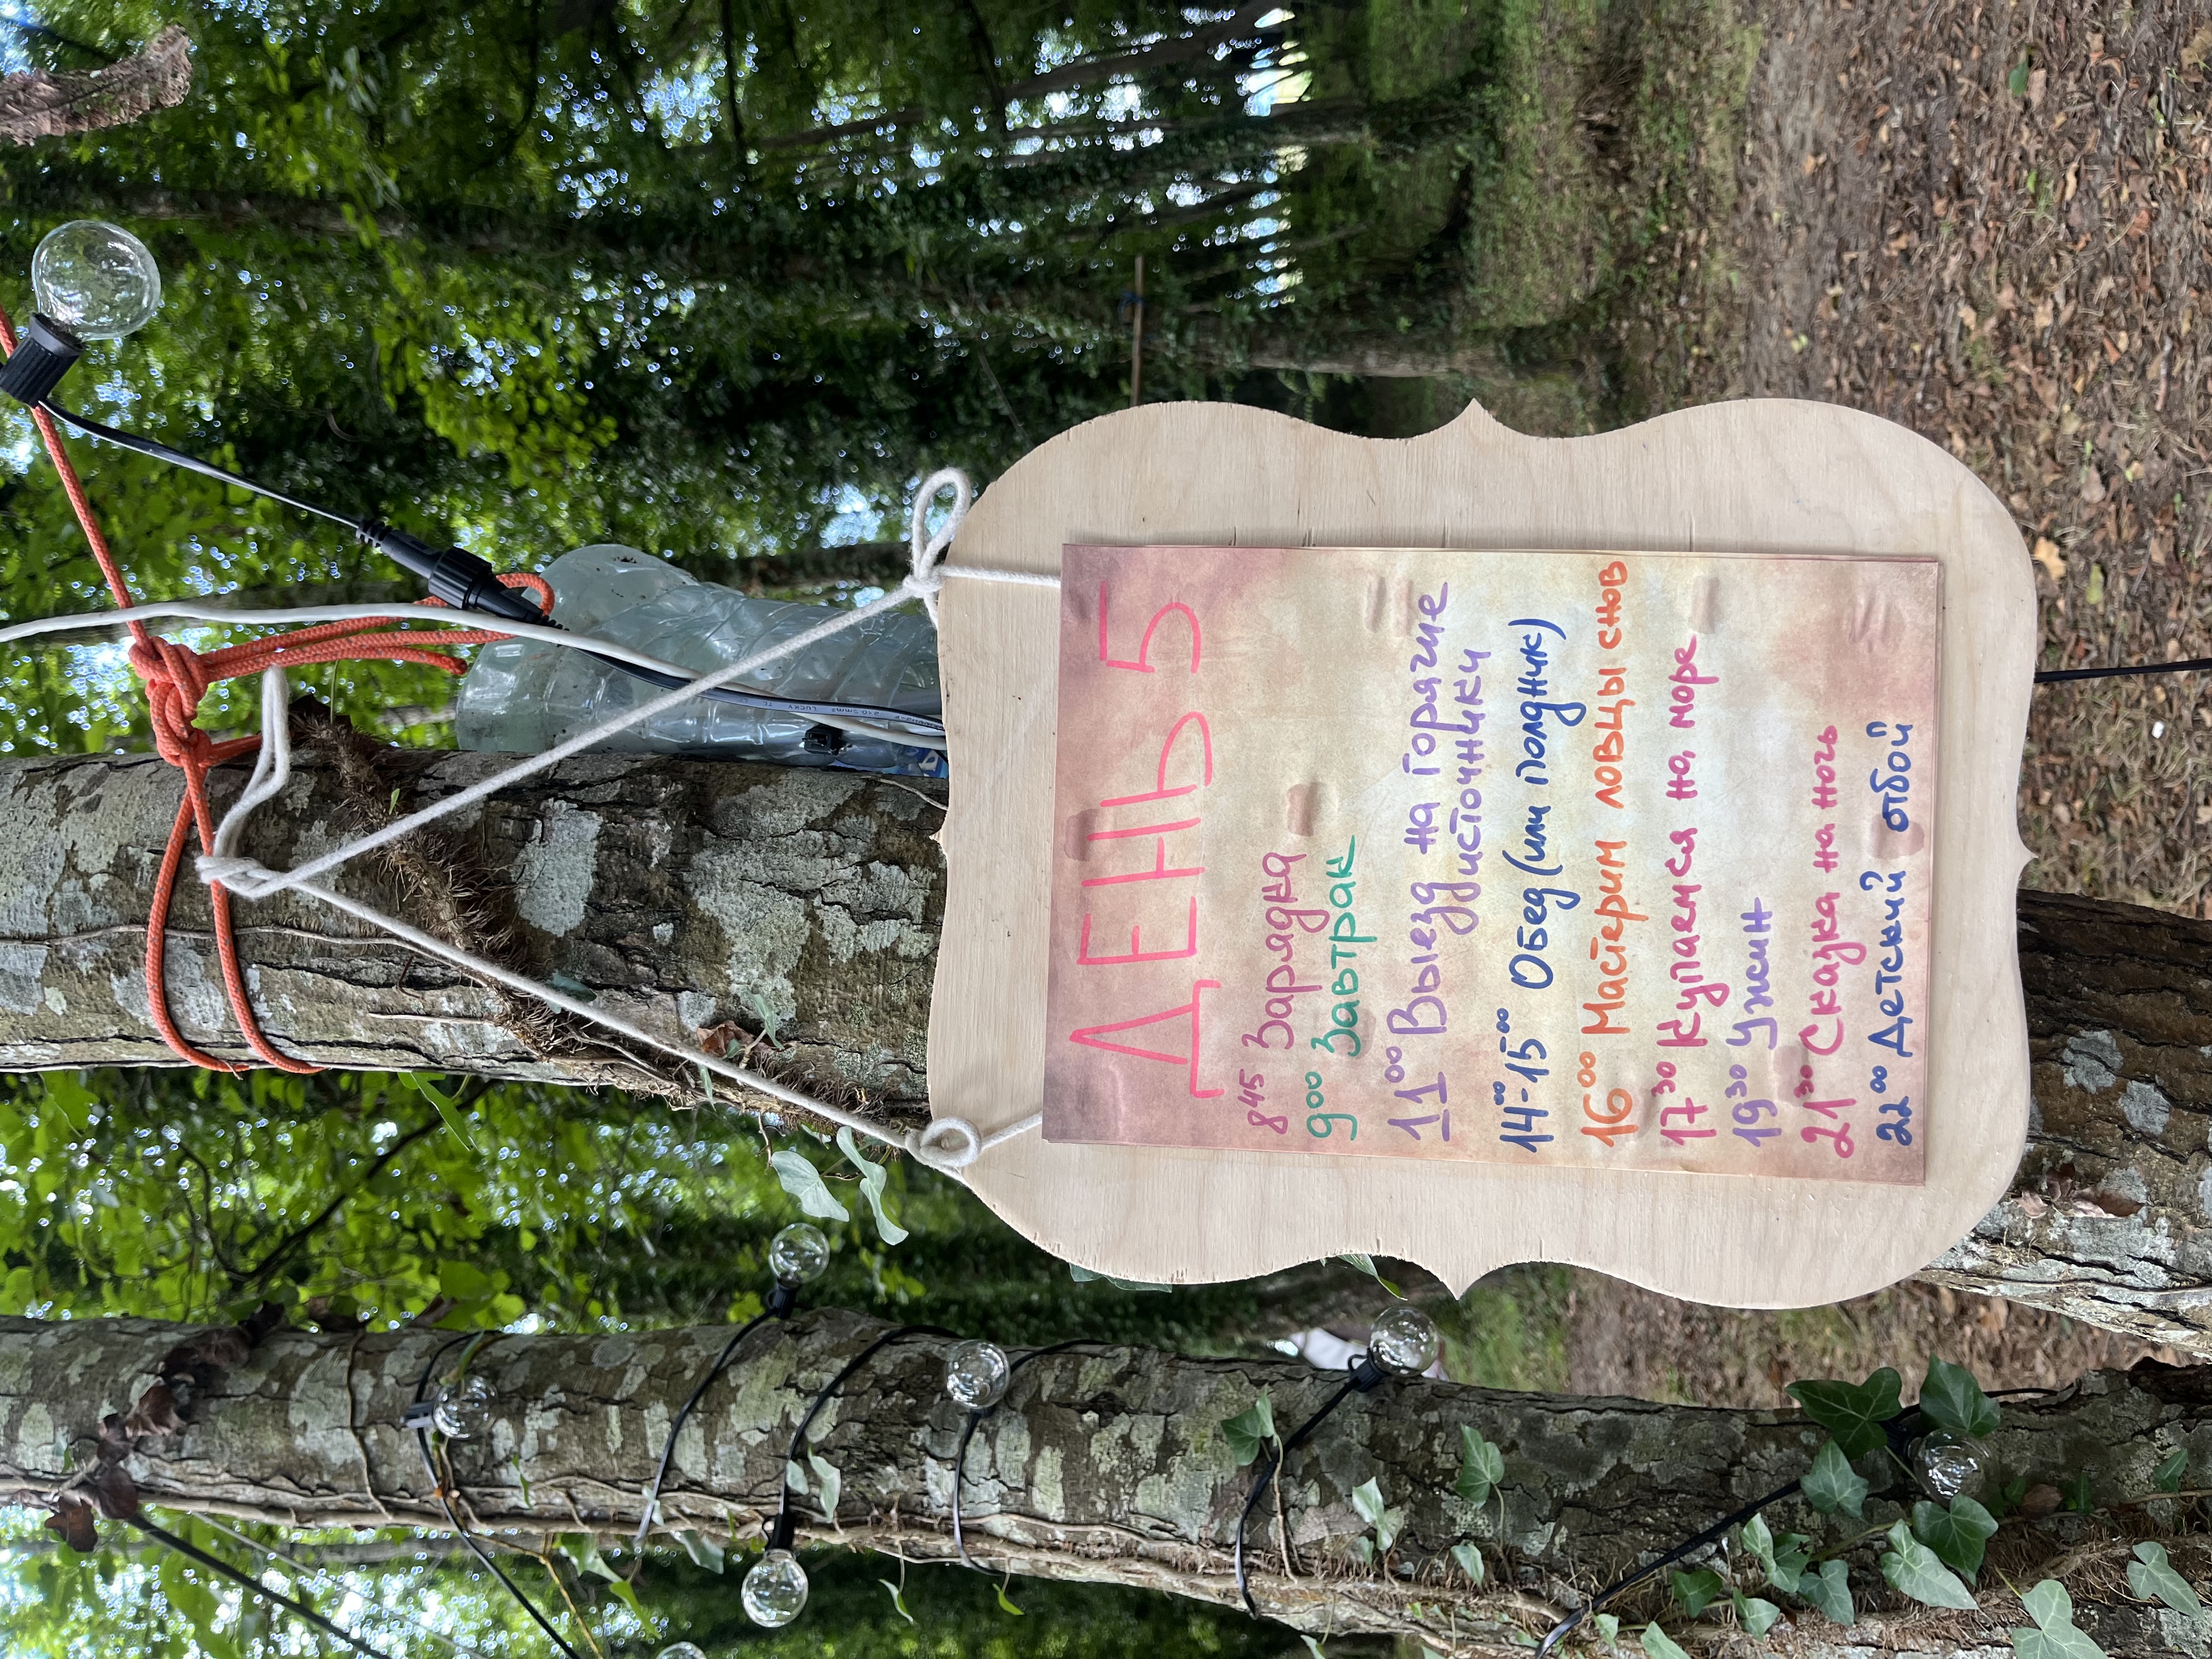 ДЕНЬ 5
8⁴⁵ Зарядка
9⁰⁰ Завтрак
11⁰⁰ Выезд на Горячие
источники
14⁰⁰-15⁰⁰ Обед (или полдник)
16⁰⁰ Мастерим ловцы снов
17³⁰ Купаемся на море
19³⁰ Ужин
21³⁰ Сказка на ночь
22⁰⁰ Детский отбой